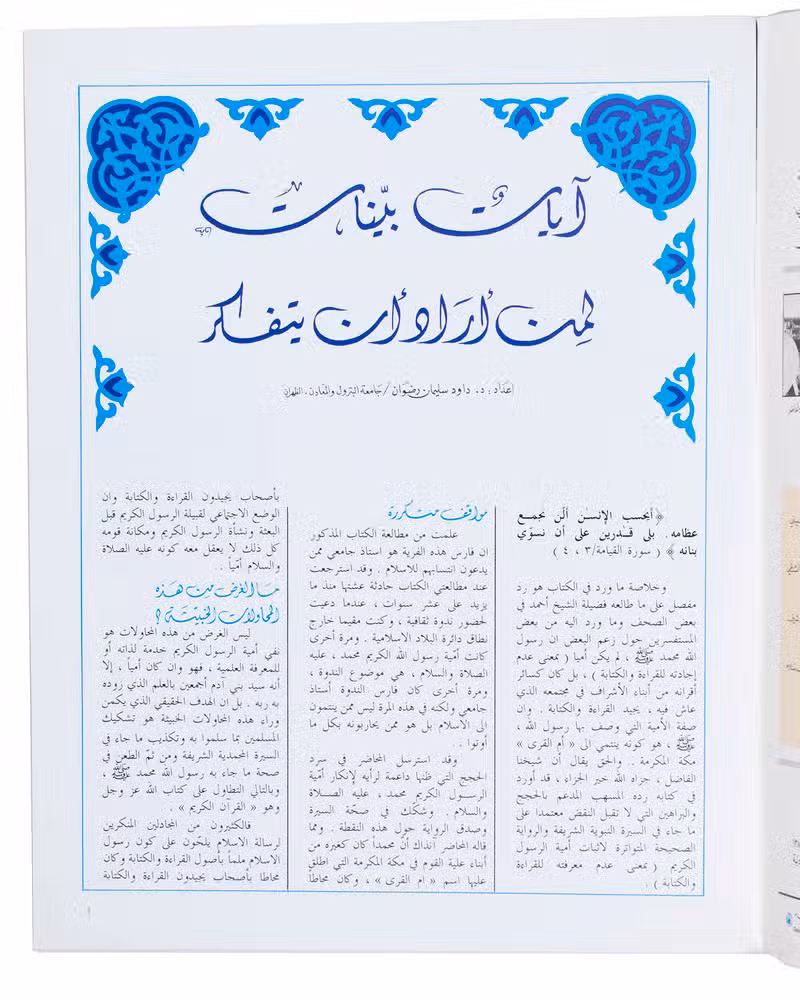 آيات بيّنات
لمن أراد أن يتفكر
إعداد : د. داود سليمان رضوان / جامعة البترول والمعادن ـ الظهران
﴿ أيحسب الإنسن ألن نجمع
عظامه. بلى قدرين على أن نسوّي
بنانه ﴾ ( سورة القيامة/٣ ، ٤ )
وخلاصة ما ورد في الكتاب هو رد
مفصل على ما طالعه فضيلة الشيخ أحمد في
بعض الصحف وما ورد اليه من بعض
المستفسرين حول زعم البعض ان رسول
الله محمد ﷺ ، لم يكن أميا ( بمعنى عدم
إجادته للقراءة والكتابة ) ، بل كان كسائر
أقرانه من أبناء الأشراف في مجتمعه الذي
عاش فيه ، يجيد القراءة والكتابة . وان
صفة الأمية التي وصف بها رسول الله ،
ﷺ ، هو كونه ينتمي الى « أم القرى »
مكة المكرمة . والحق يقال أن شيخنا
الفاضل ، جزاه الله خير الجزاء ، قد أورد
في كتابه رده المسهب المدعم بالحجج
والبراهين التي لا تقبل النقض معتمدا على
ما جاء في السيرة النبوية الشريفة والرواية
الصحيحة المتواترة لاثبات أمية الرسول
الكريم ( بمعنى عدم معرفته للقراءة
والكتابة ) .
مواقف متكررة
علمت من مطالعة الكتاب المذكور
ان فارس هذه الفرية هو استاذ جامعي ممن
يدعون انتسابهم للاسلام . وقد استرجعت
عند مطالعتي الكتاب حادثة عشتها منذ ما
يزيد على عشر سنوات ، عندما دعيت
لحضور ندوة ثقافية ، وكنت مقيما خارج
نطاق دائرة البلاد الاسلامية . ومرة أخرى
كانت أمّية رسول الله الكريم محمد ، عليه
الصلاة والسلام ، هي موضوع الندوة ،
ومرة أخرى كان فارس الندوة أستاذ
جامعي ولكنه في هذه المرة ليس ممن ينتمون
الى الاسلام بل هو ممن يحاربونه بكل ما
أوتوا .
وقد استرسل المحاضر في سرد
الحجج التي ظنها داعمة لرأيه لإنكار أمّية
الرسول الكريم محمد ، عليه الصلاة
والسلام . وشكّك في صحّة السيرة
وصدق الرواية حول هذه النقطة . ومما
قاله المحاضر انذاك أن محمداً كان كغيره من
أبناء علية القوم في مكة المكرمة التي اطلق
عليها اسم « ام القرى » ، وكان محاطاً
بأصحاب يجيدون القراءة والكتابة وان
الوضع الاجتماعي لقبيلة الرسول الكريم قبل
البعثة ونشأة الرسول الكريم ومكانة قومه
كل ذلك لا يعقل معه كونه عليه الصلاة
والسلام أمّياً .
ما الغرض من هذه
المحاولات الخبيثة ؟
ليس الغرض من هذه المحاولات هو
نفي أمية الرسول الكريم خدمة لذاته أو
للمعرفة العلمية ، فهو وان كان أمياً ، إلا
أنه سيد بني آدم أجمعين بالعلم الذي زوده
به ربه . بل ان الهدف الحقيقي الذي يكمن
وراء هذه المحاولات الخبيثة هو تشكيك
المسلمين بما سلموا به وتكذيب ما جاء في
السيرة المحمدية الشريفة ومن ثمّ الطعن في
صحة ما جاء به رسول الله محمد ﷺ ،
وبالتالي التطاول على كتاب الله عز وجل
وهو « القرآن الكريم » .
فالكثيرون من المجادلين المنكرين
لرسالة الاسلام يلحون على كون رسول
الاسلام ملماً بأصول القراءة والكتابة وكان
محاطا بأصحاب يجيدون القراءة والكتابة